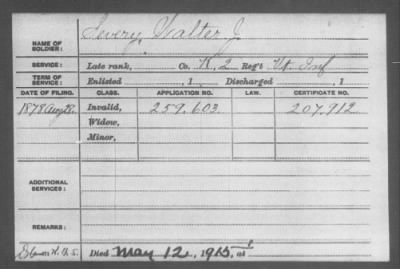 NAME OF SOLDIER: Severy, Walter J.
SERVICE: Late rank, Co. K, 2 Reg't Vt. Inf
TERM OF SERVICE: Enlisted , 1 Discharged , 1
DATE OF FILING. CLASS. APPLICATION NO. LAW. CERTIFICATE NO.
1878 Aug 28. Invalid, 259.603 207,912
Widow,
Minor,
ADDITIONAL SERVICES:
REMARKS:
Died May 12, 1915, at